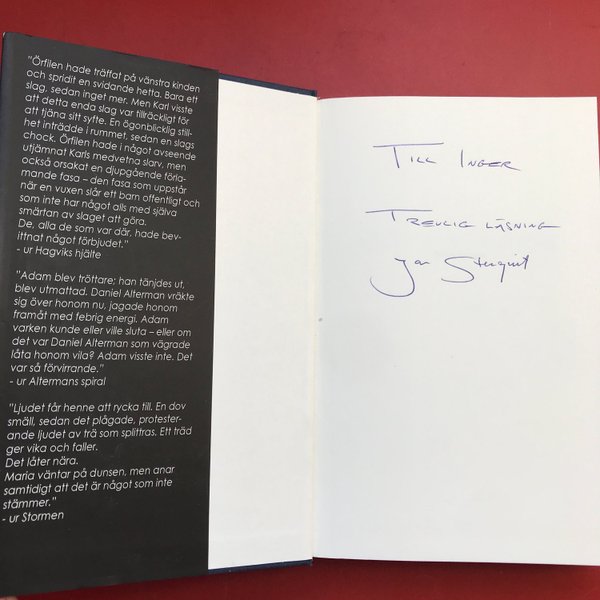 "Örfilen hade träffat på vänstra kinden
och spridit en svidande hetta. Bara ett
slag, sedan inget mer. Men Karl visste
att detta enda slag var tillräckligt för
att tjäna sitt syfte. En ögonblicklig still-
het inträdde i rummet, sedan en slags
chock. Örfilen hade i något avseende
utjämnat Karls medvetna slarv, men
också orsakat en djupgående förla-
mande fasa – den fasa som uppstår
när en vuxen slår ett barn offentligt och
som inte har något alls med själva
smärtan av slaget att göra.
De, alla de som var där, hade bev-
ittnat något förbjudet."
- ur Hagviks hjälte
"Adam blev tröttare; han tänjdes ut,
blev utmattad. Daniel Alterman vräkte
sig över honom nu, jagade honom
framåt med febrig energi. Adam
varken kunde eller ville sluta – eller om
det var Daniel Alterman som vägrade
låta honom vila? Adam visste inte. Det
var så förvirrande."
- ur Altermans spiral
"Ljudet får henne att rycka till. En dov
smäll, sedan det plågade, protester-
ande ljudet av trä som splittras. Ett träd
ger vika och faller.
Det låter nära.
Maria väntar på dunsen, men anar
samtidigt att det är något som inte
stämmer."
- ur Stormen
TILL INGER
TREVLIG LÄSNING
Jan